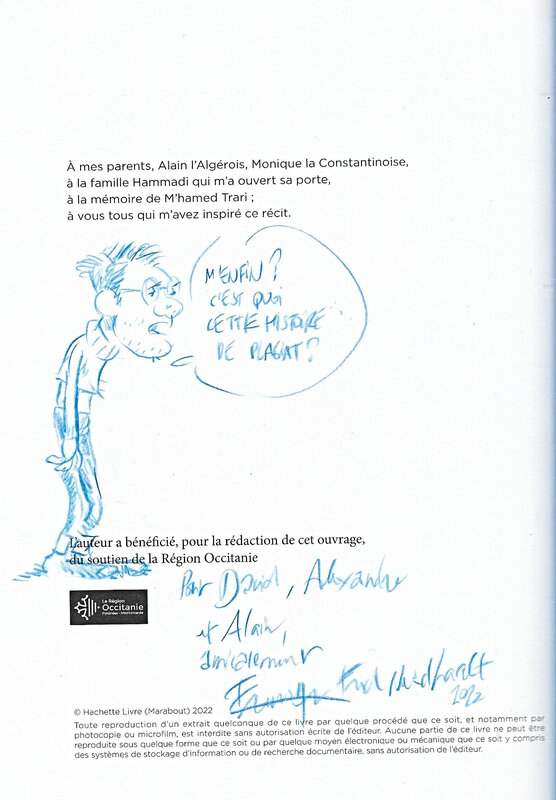 À mes parents, Alain l'Algérois, Monique la Constantinoise,
à la famille Hammadi qui m'a ouvert sa porte,
à la mémoire de M'hamed Trari ;
à vous tous qui m'avez inspiré ce récit.
M'ENFIN ?
C'EST QUOI
CETTE HISTOIRE
DE PLAGIAT ?
L'auteur a bénéficié, pour la rédaction de cet ouvrage,
du soutien de la Région Occitanie
La Région
Occitanie
Pyrénées - Méditerranée
Pour David, Alexandre
et Alain,
amicalement
2022
© Hachette Livre (Marabout) 2022
Toute reproduction d'un extrait quelconque de ce livre par quelque procédé que ce soit, et notamment par
photocopie ou microfilm, est interdite sans autorisation écrite de l'éditeur. Aucune partie de ce livre ne peut être
reproduite sous quelque forme que ce soit ou par quelque moyen électronique ou mécanique que ce soit y compris
des systèmes de stockage d'information ou de recherche documentaire, sans autorisation de l'éditeur.